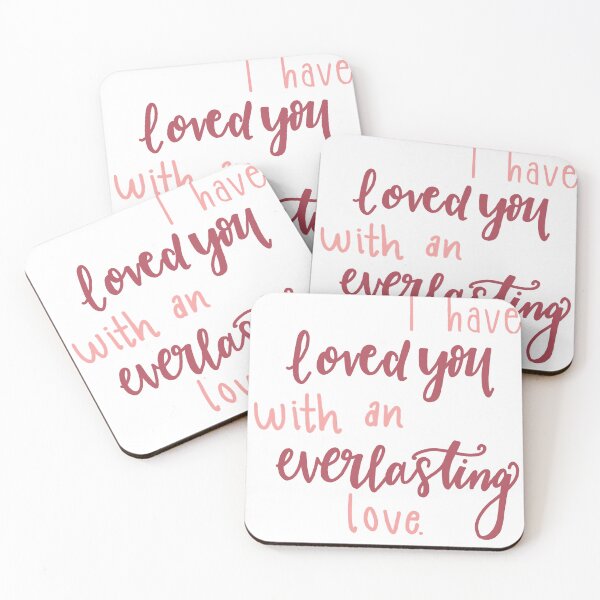 I have
loved you
with
I have
loved you
with an
everlasting
I have
loved you
with an
I have
loved you
with an
everlasting
love.